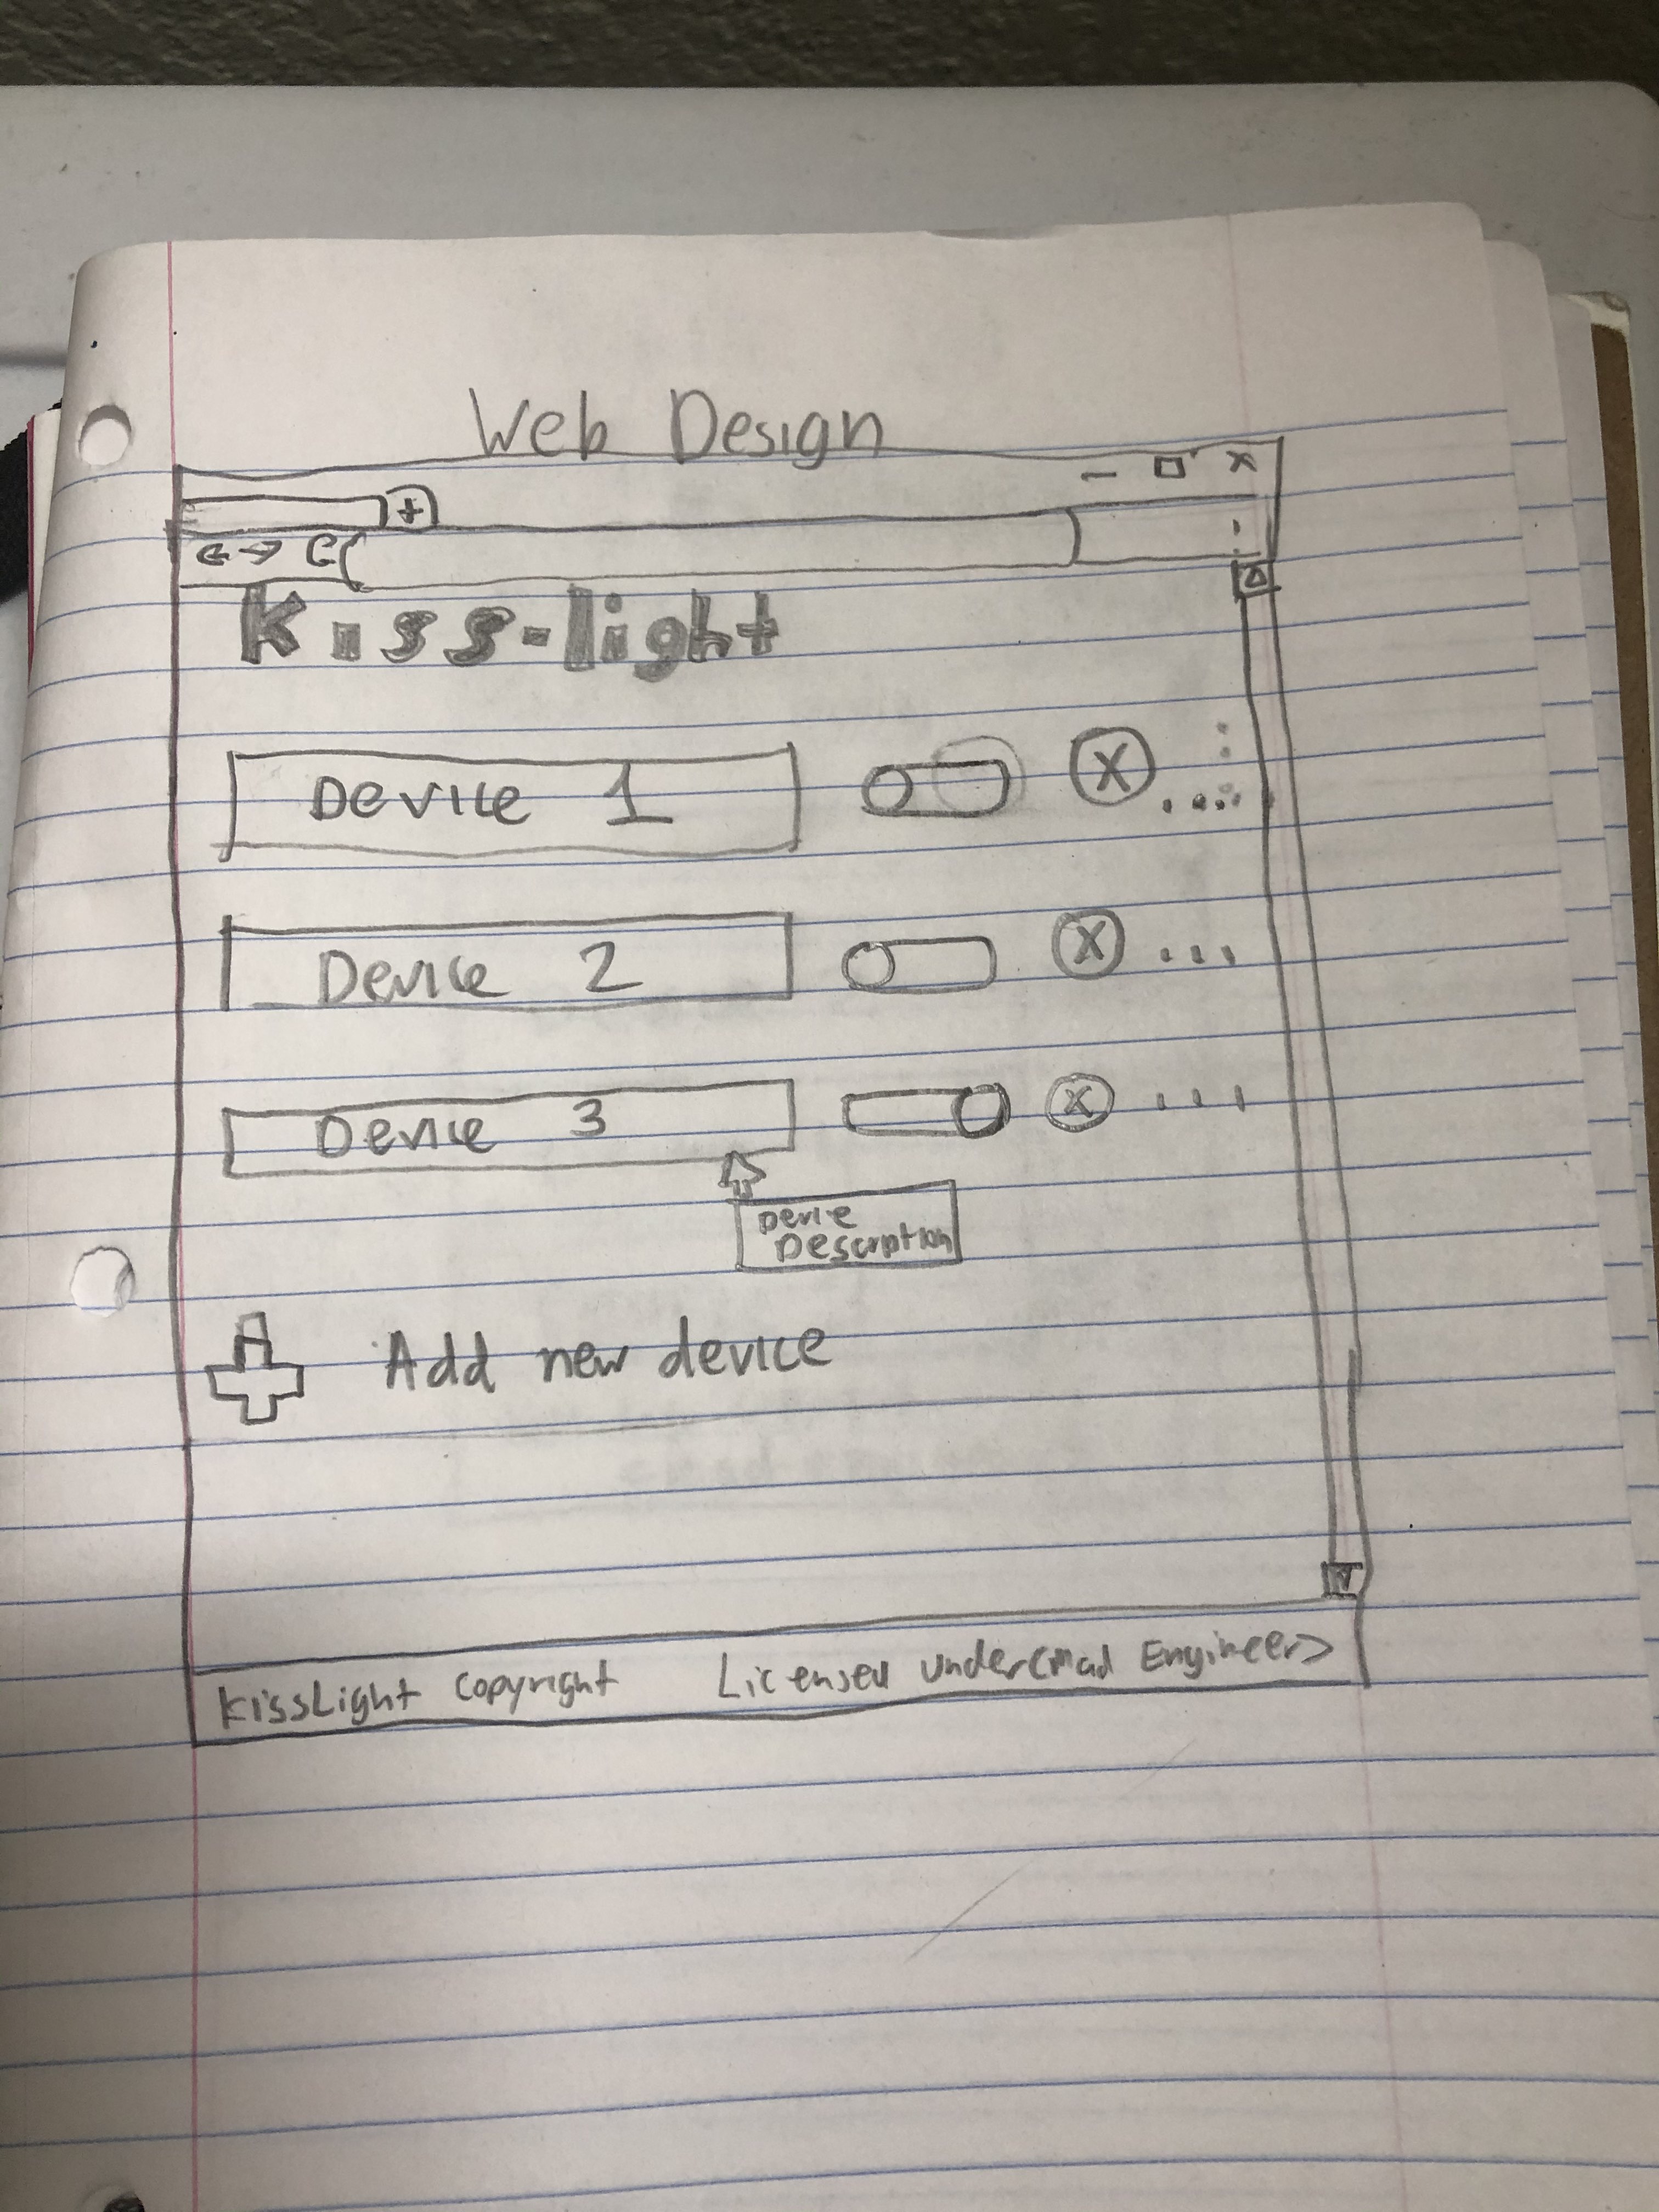 Web Design
Kiss-light
Device 1
Device 2
Device 3
Device
Description
Add new device
KissLight Copyright Licensed under(Mad Engineer>